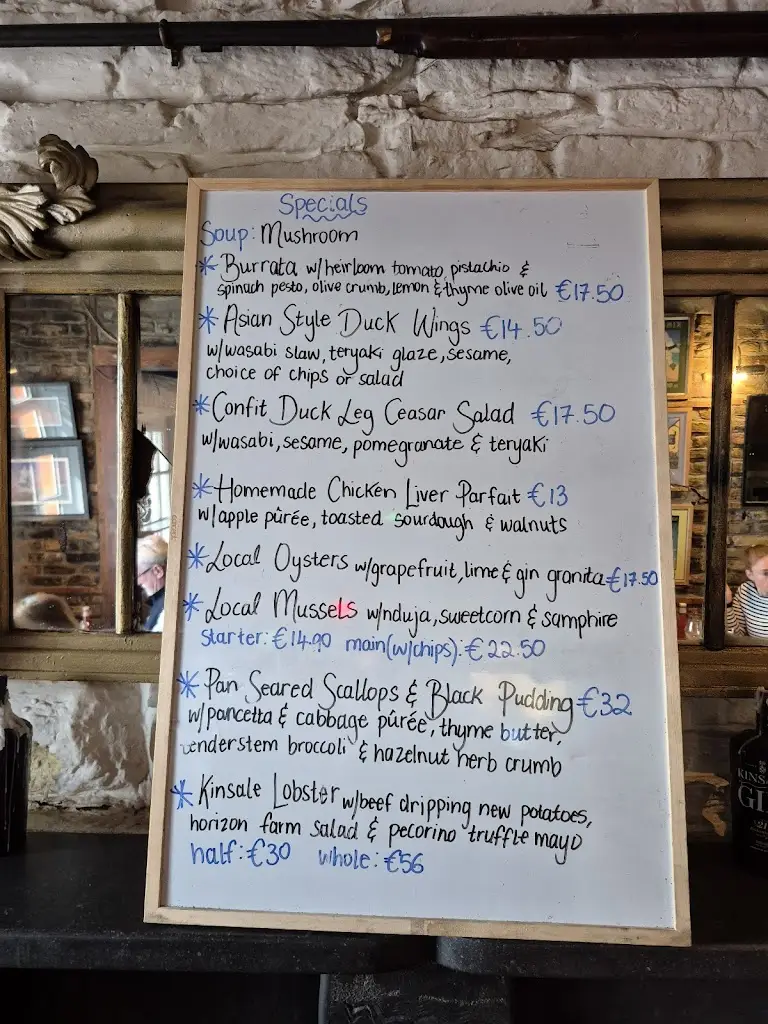 Specials
Soup: Mushroom
* Burrata w/heirloom tomato, pistachio &
spinach pesto, olive crumb, lemon & thyme olive oil €17.50
* Asian Style Duck Wings €14.50
w/wasabi slaw, teryaki glaze, sesame,
choice of chips or salad
* Confit Duck Leg Ceasar Salad €17.50
w/wasabi, sesame, pomegranate & teryaki
* Homemade Chicken Liver Parfait €13
w/apple pûrée, toasted sourdough & walnuts
* Local Oysters w/grapefruit, lime & gin granita €17.50
* Local Mussels w/nduja, sweetcorn & samphire
starter: €14.90 main(w/chips): €22.50
* Pan Seared Scallops & Black Pudding €32
w/pancetta & cabbage pûrée, thyme butter,
tenderstem broccoli & hazelnut herb crumb
* Kinsale Lobster w/beef dripping new potatoes,
horizon farm salad & pecorino truffle mayo
half: €30 whole: €56